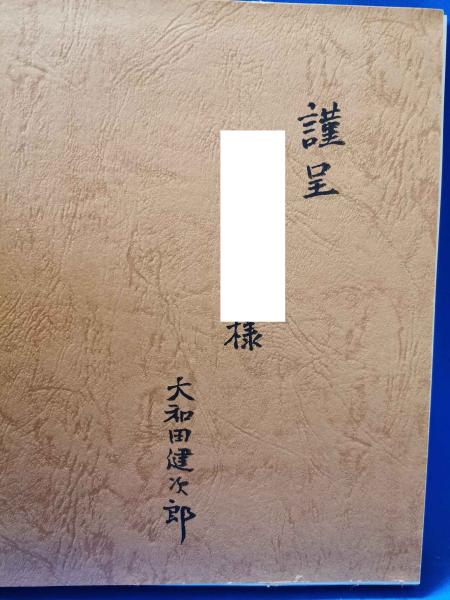 謹呈
様
大和田健次郎